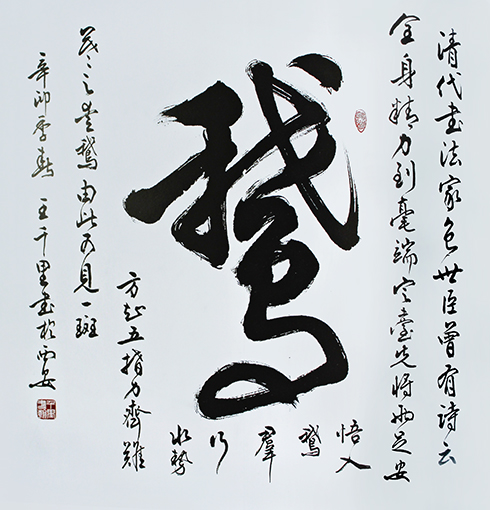 清代書法家包世臣曾有詩云
全身精力到毫端定臺先將兩足安
鵝
悟入鵝羣行水勢
方知五指力齊難
之愛鵝由此可見一斑
辛卯季春王千里書於西安